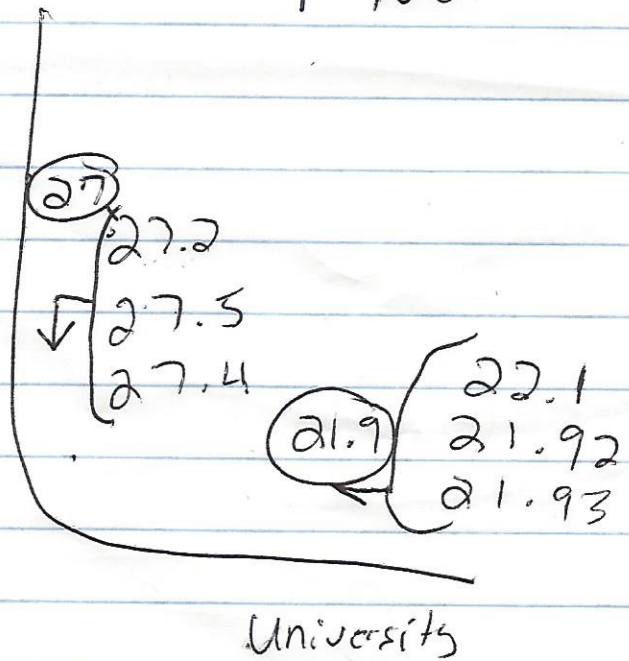 27
27.2
27.5
27.4
21.9
22.1
21.92
21.93
University